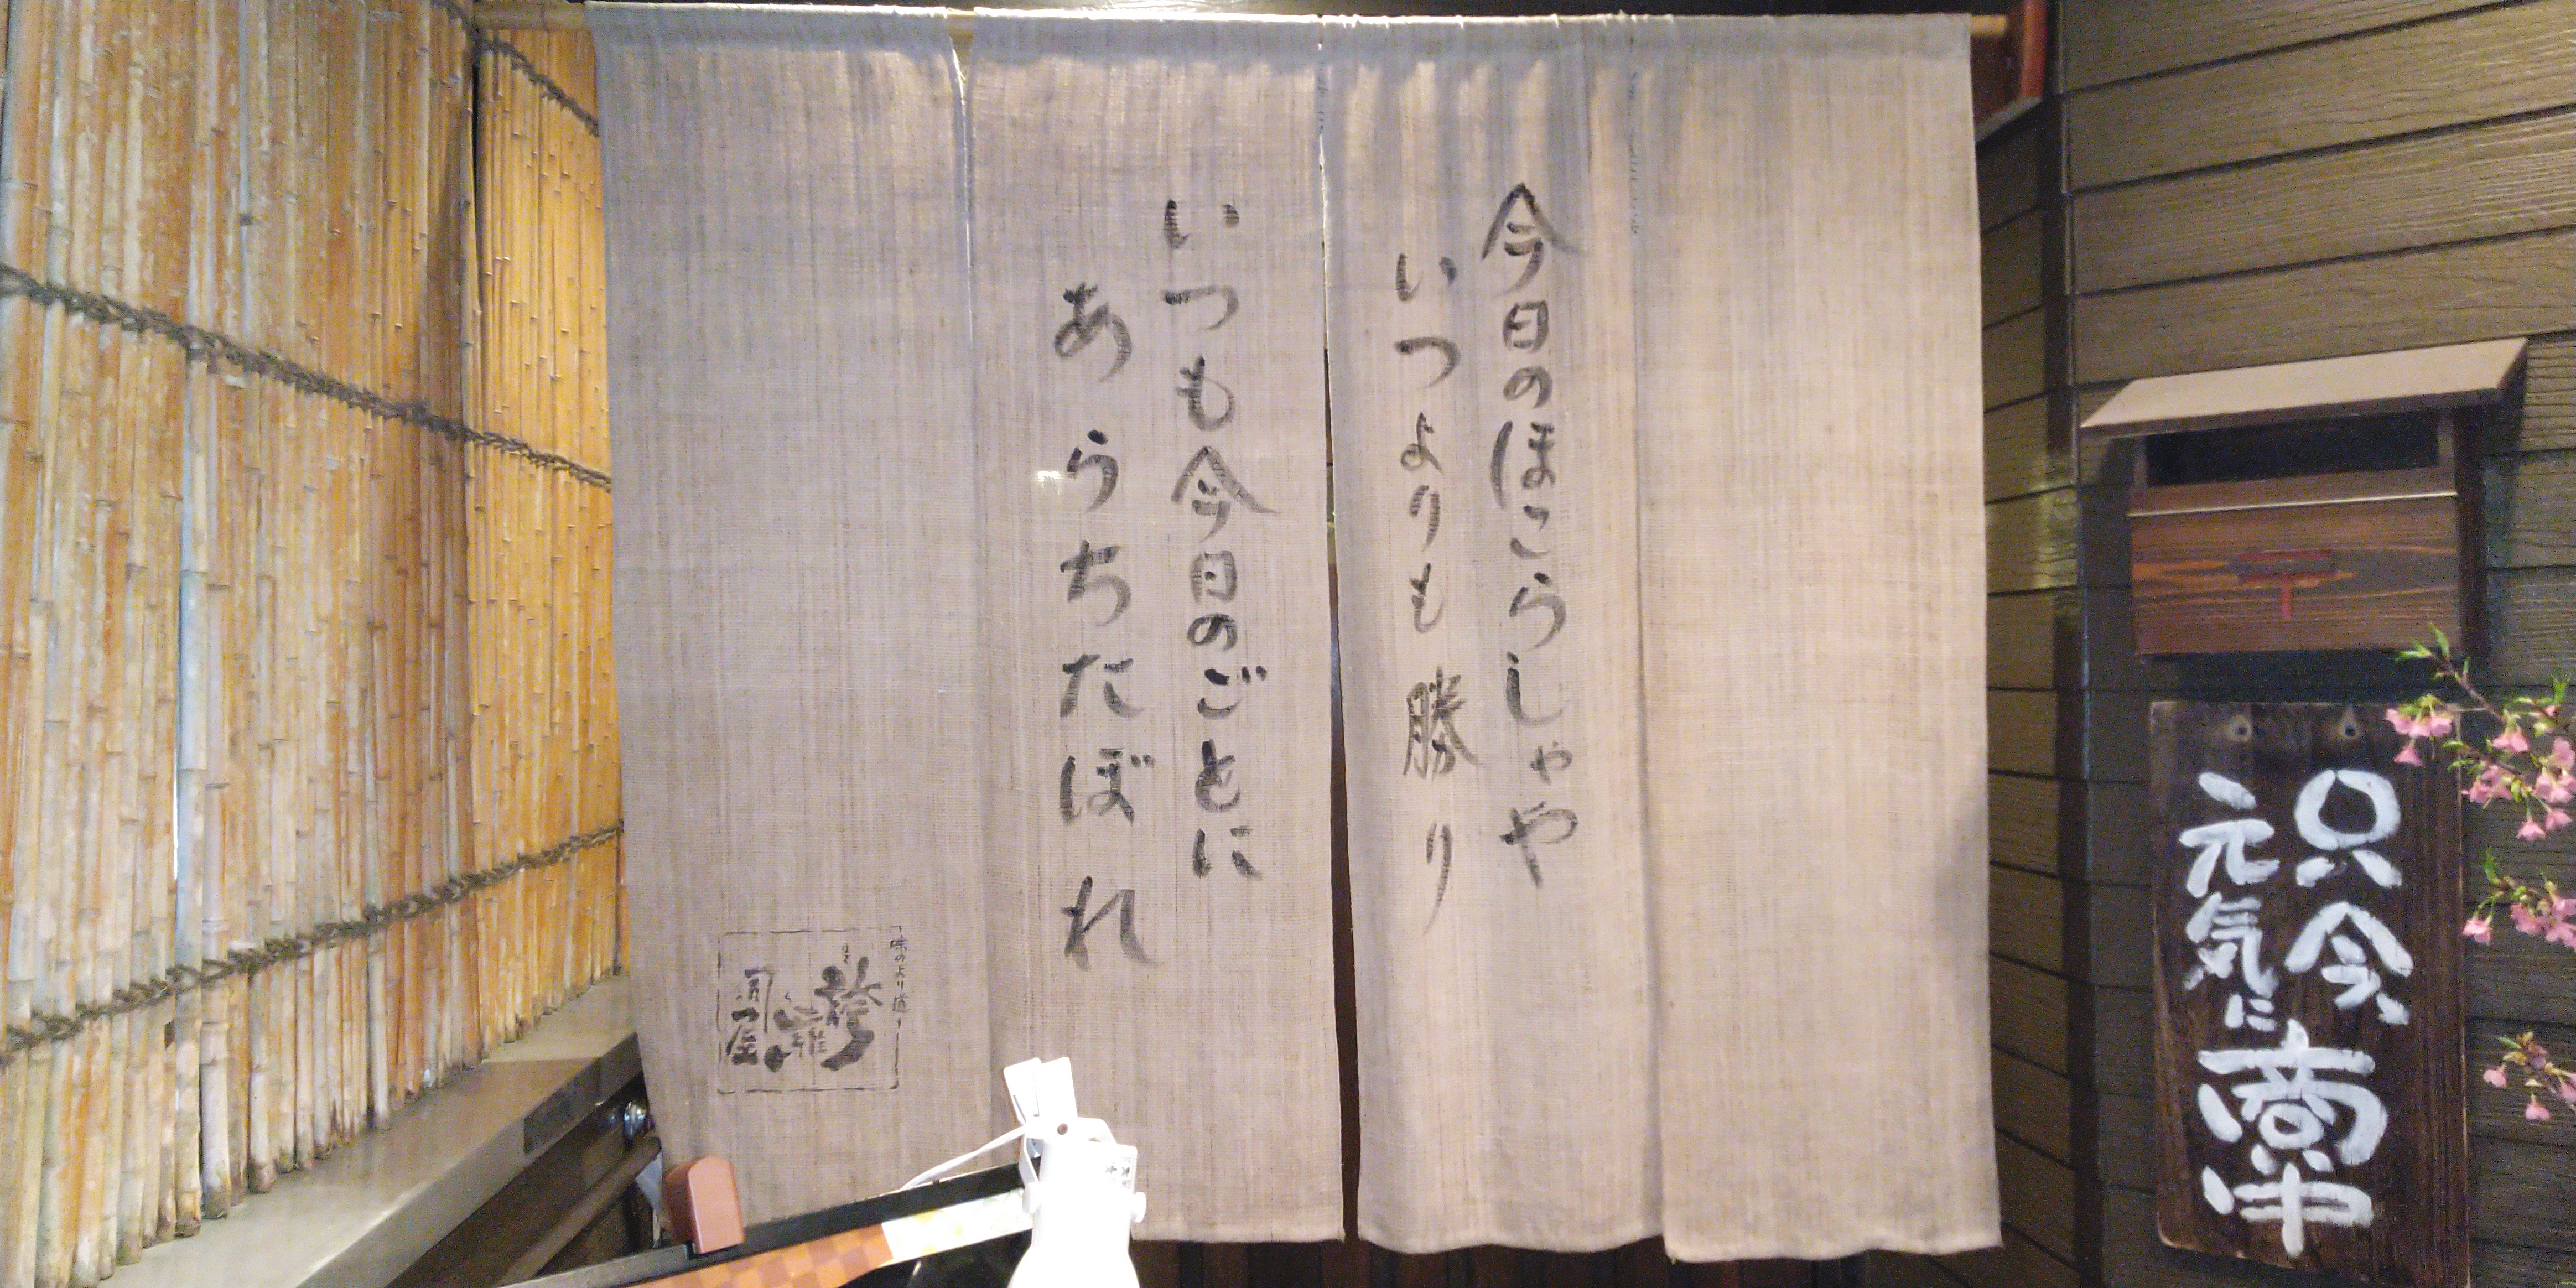 今日のほこらしゃや
いつよりも勝り
いつも今日のごとに
あらちたぼれ
味のより道
只今、
元気に
商い中